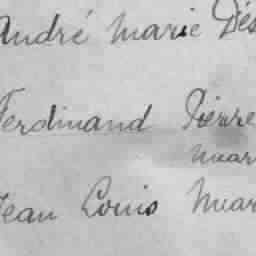 André Marie Dés
Ferdinand Pierre
Mar
Jean Louis Mar